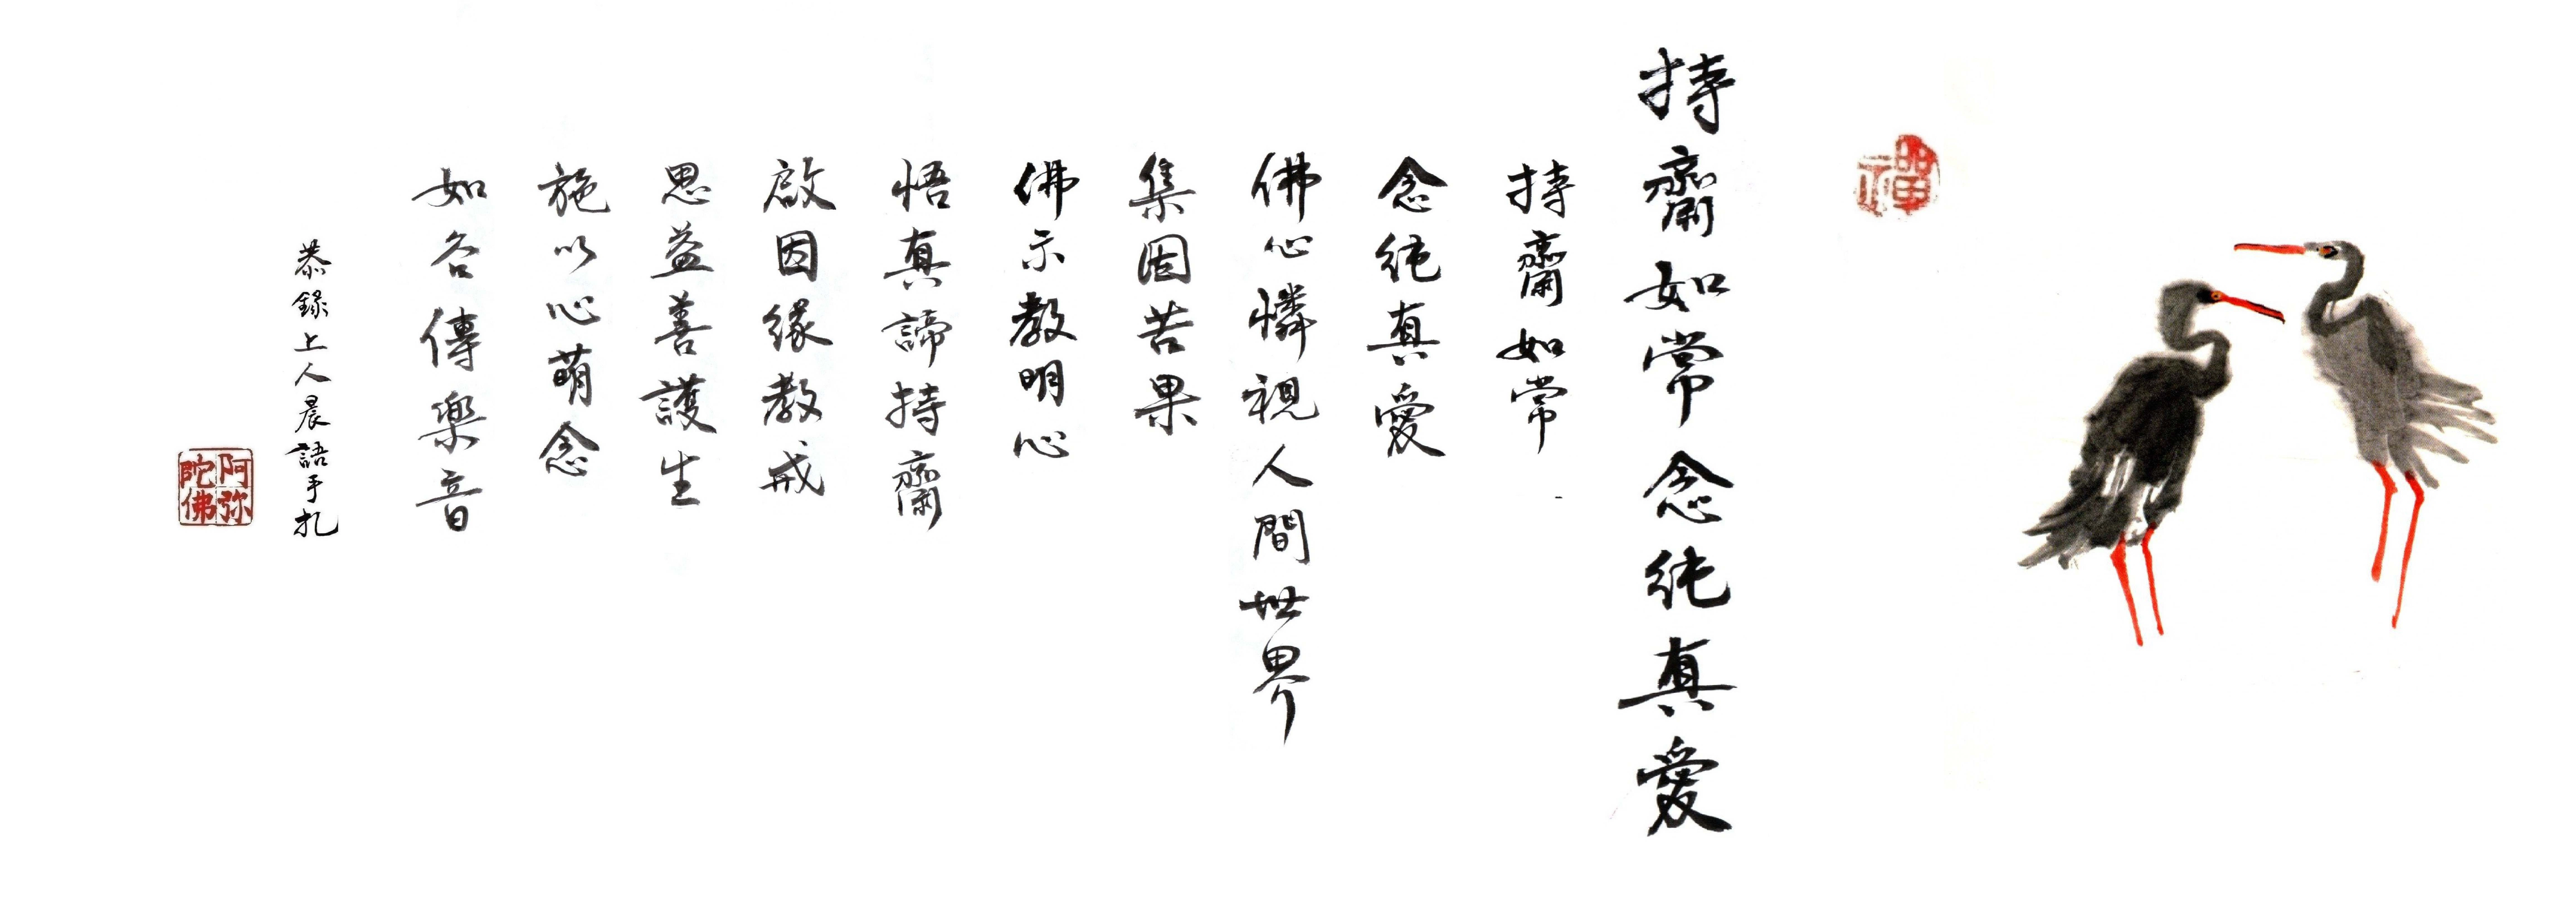 禪
持齋如常念純真愛
持齋如常
念純真愛
佛心憐視人間世界
集因苦果
佛示教明心
悟真諦持齋
啟因緣教戒
思益善護生
施以心萌念
如谷傳樂音
恭錄上人晨語手扎
阿弥陀佛